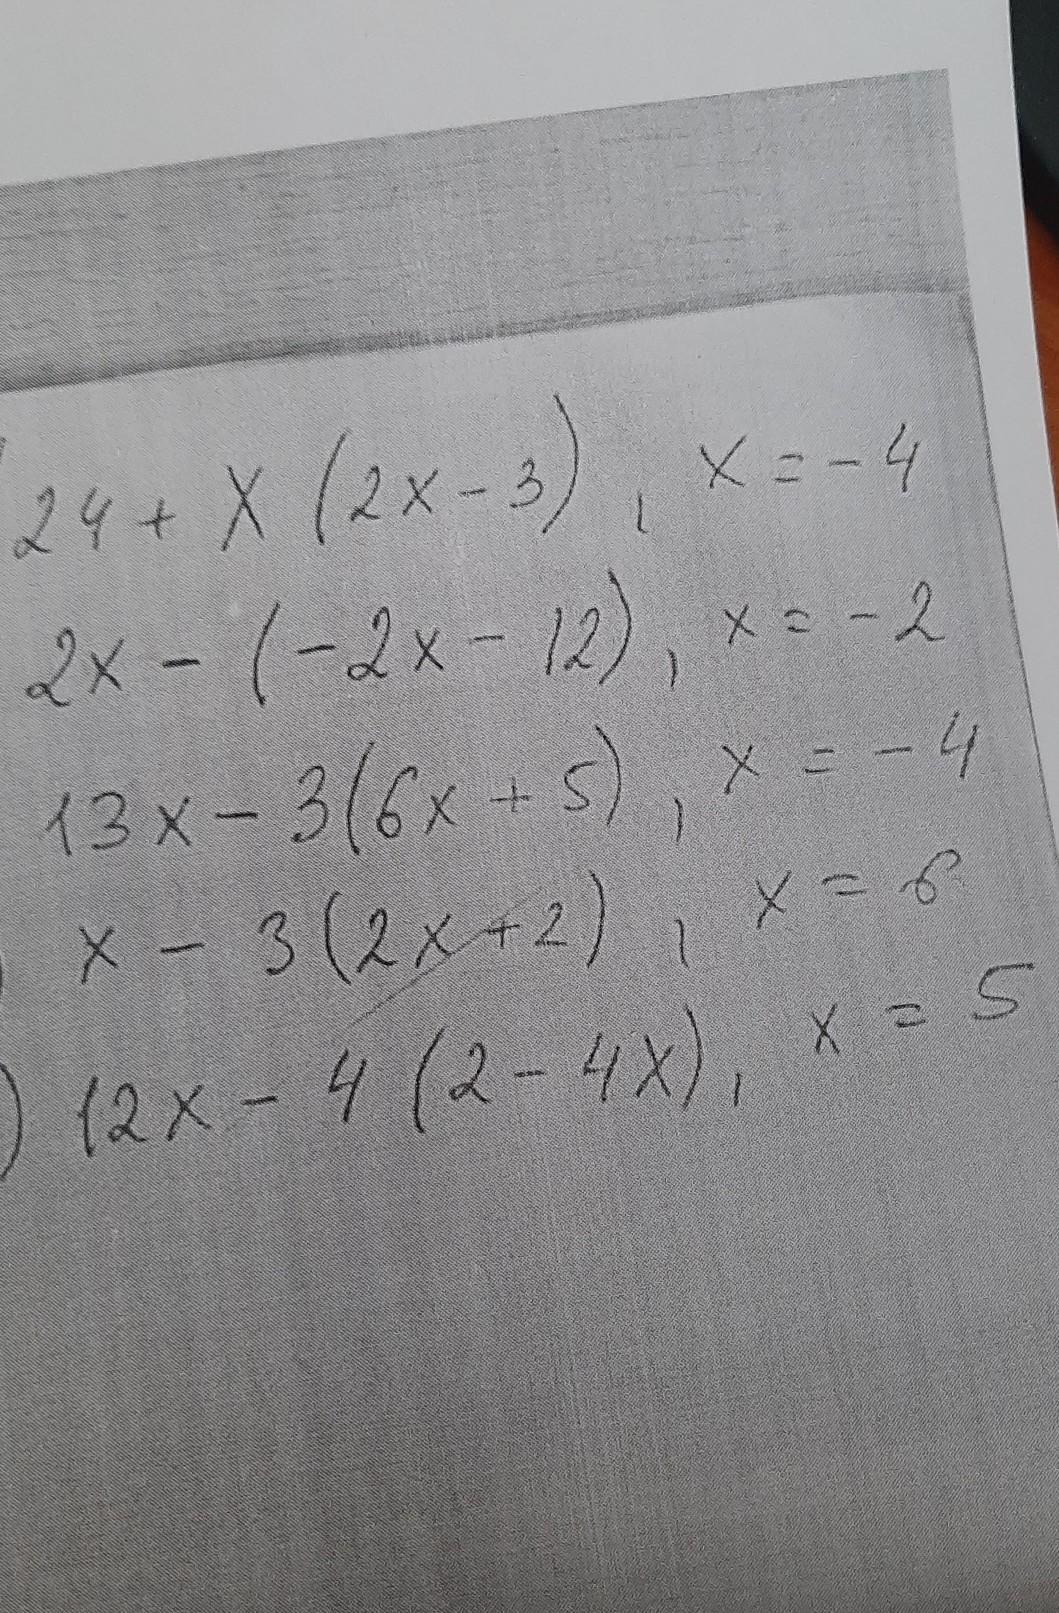 24 + x (2x - 3), x = - 4
2x - (-2x - 12), x = - 2
13x - 3(6x + 5), x = - 4
) x - 3(2x + 2), x = 6
) 12x - 4 (2 - 4x), x = 5